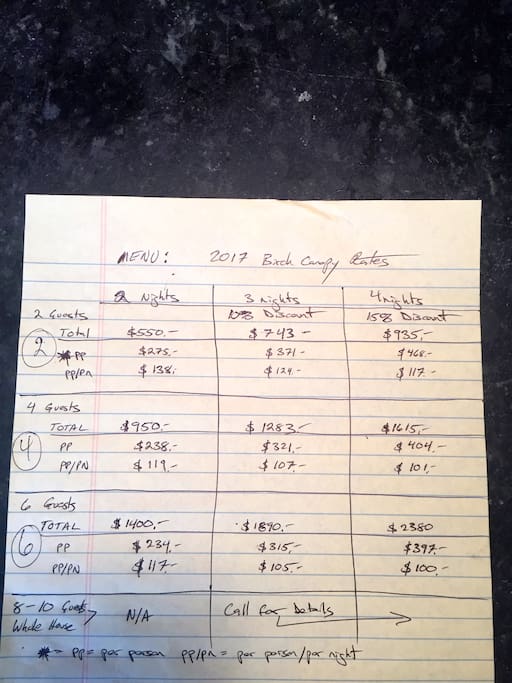 MENU: 2017 Birch Canopy Rates
2 Nights 3 nights 4 nights
2 Guests 10% Discount 15% Discount
2 Total $550.- $743- $935.-
* PP $275.- $371- $468.-
PP/PN $138. $124.- $117-
4 Guests
4 TOTAL $950.- $1283.- $1615.-
PP $238.- $321.- $404.-
PP/PN $119.- $107.- $101.-
6 Guests
6 TOTAL $1400.- $1890.- $2380
PP $234.- $315.- $397.-
PP/PN $117.- $105.- $100.-
8-10 Guests N/A Call for Details
Whole House
*= PP= per person PP/PN = per person/per night